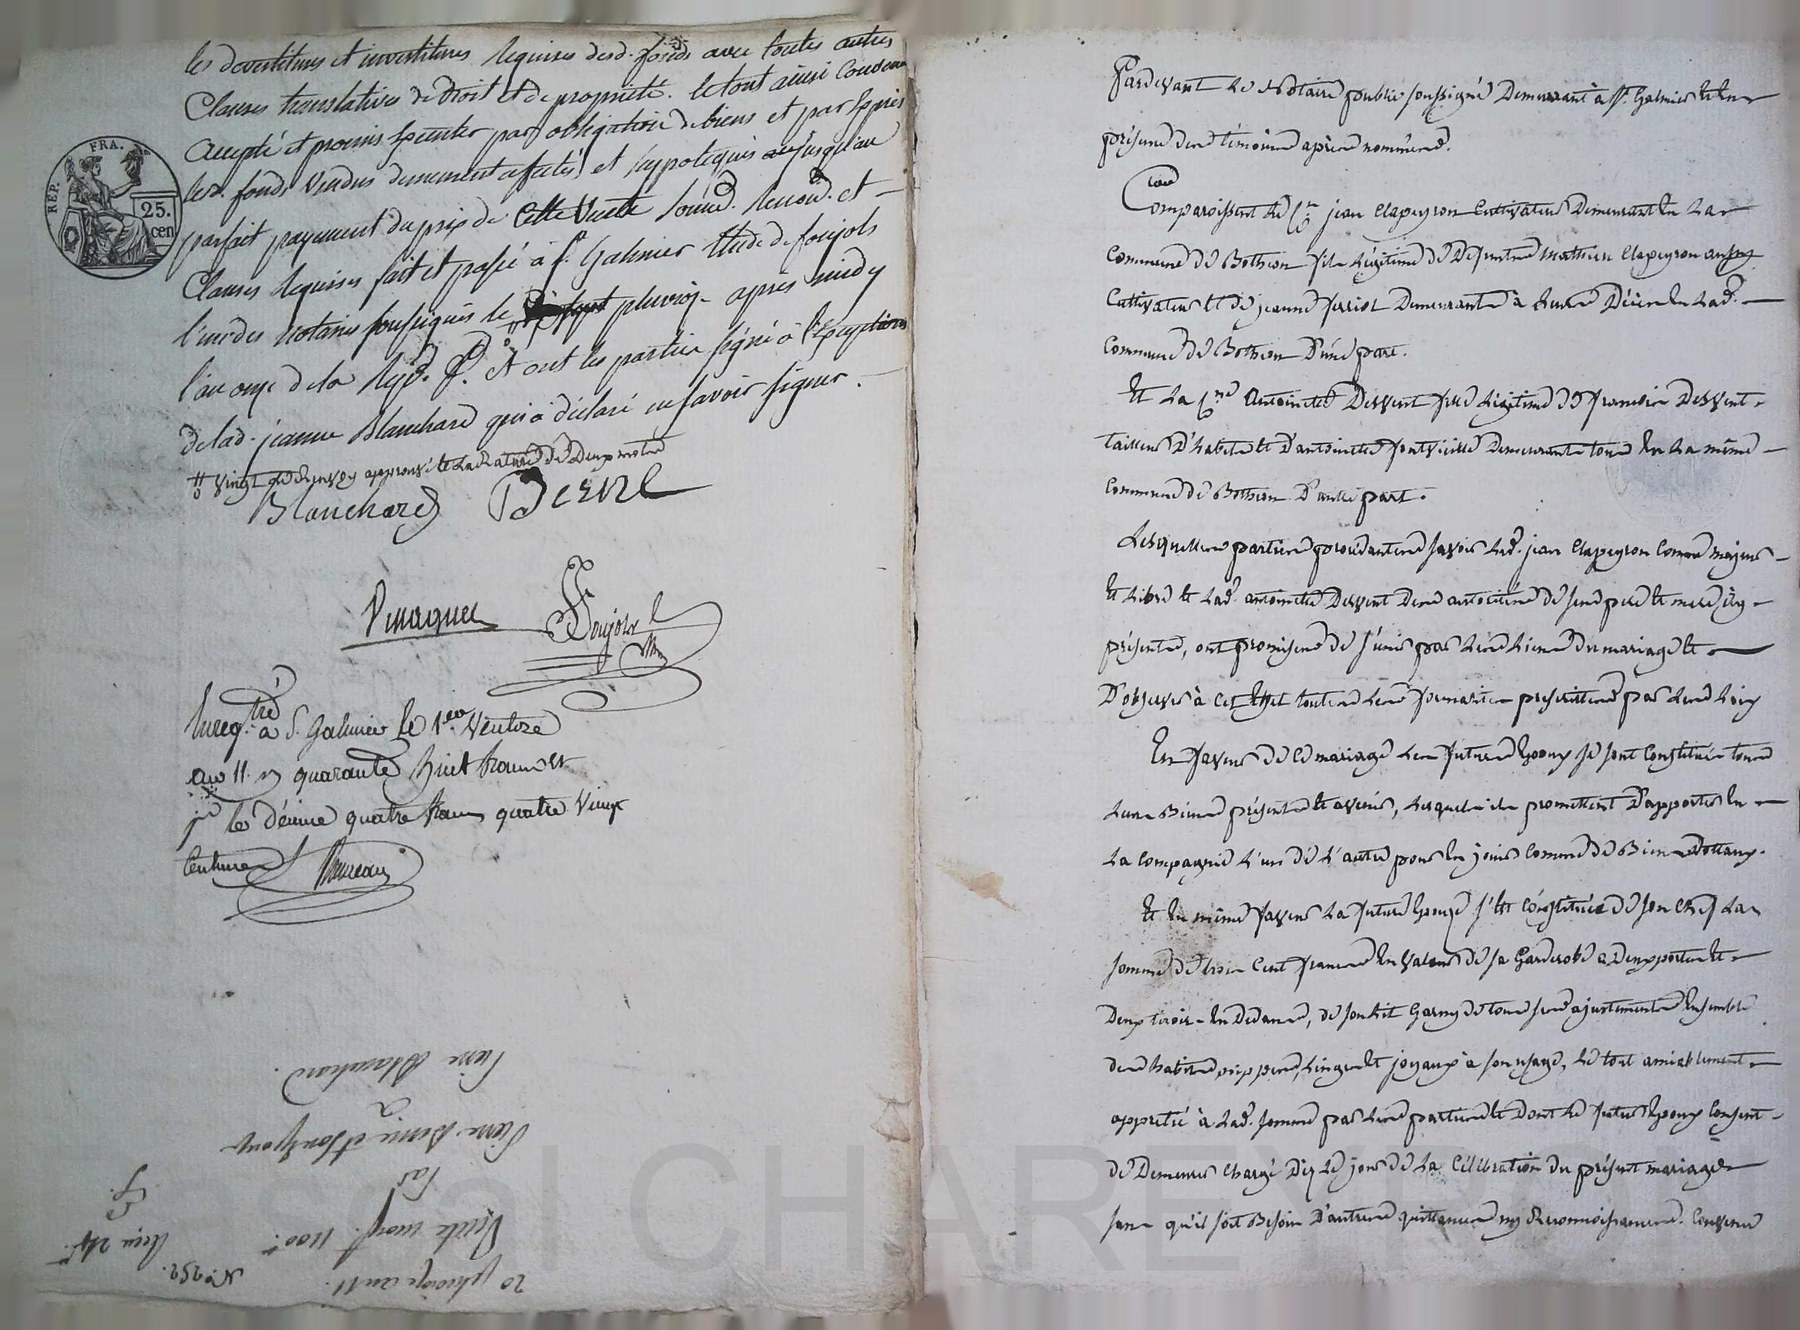 les devestitures et investitures requises desd. fonds avec toutes autres
Clauses translatives de droit et de propriété. le tout ainsi convenu
accepté et promis par obligation de biens et par exprès
les d. fonds vendus demeurent afectés et hypotequés jusqu'au
parfait payement du prix de cette vente soumd. renond. et
Clauses requises fait et passé à St. Galmier étude de foujols
l'un des notaires soussignés le pluviose après midy
l'an onze de la Rep. f. et ont les parties signé à l'exception
de lad. jeanne Blanchard qui a déclaré ne savoir signer.
vingt approuvé la rature de deux mots
Blanchard
foujols
REP. FRA.
25. cen
Enregtré à S. Galmier le 1er Ventose
an 11. quarante huit francs et
pr le dixme quatre francs quatre vingt
Centimes
Pardevant Le Notaire public soussigné Demeurant à St. Galmier et en
présence des témoins après nommés.
Comparoissent le Cn jean Clapeyron Cultivateur Demeurant en la
Commune de Bothéon fils légitime de Defunt Mathieu Clapeyron
Cultivateur et de jeanne Demeurante à en lad.
Commune de Bothéon D'une part.
Et La Cne Antoinette Dervent fille Légitime de françois Dervent
tailleur D'habits et D'antoinette fontvieille Demeurants tous En La même
Commune de Bothéon D'autre part.
Lesquelles parties procédantes savoir led. jean Clapeyron Comme majeur
et Libre et Lad. antoinette Dervent De autorité de ses père et mère icy
présents, ont promis de s'unir par les liens du mariage et
D'observer à cet Effet toutes les formalités prescrites par les Loix
En faveur de ce mariage les futurs Epoux se sont Constitués tous
leurs Biens présents et avenir, lesquels ils promettent D'apporter En
La Compagnie L'un de L'autre pour En jouir Comme de Biens Dottaux.
Et En même faveur La future Epouse s'est Constituée de son Chef La
somme de trois Cent francs En valeur de sa Garderobe à Deux portes et
Deux tiroirs En Dedans, de son Lit Garny de tous ses ajustements Ensemble
des habits nippes, Linges et joyaux à son usage, Le tout amiablement
apprétié à Lad. somme par Les parties et Dont Le futur Epoux Consent
de Demeurer Chargé Dez Le jour de La Célébration du présent mariage
sans qu'il soit Besoin D'autres quittances ny Reconnoissances. Convenu
20 pluviose an 11.
Vente 1100 f.
Par
Pierre et
à
Pierre Blanchard.
No. 252.